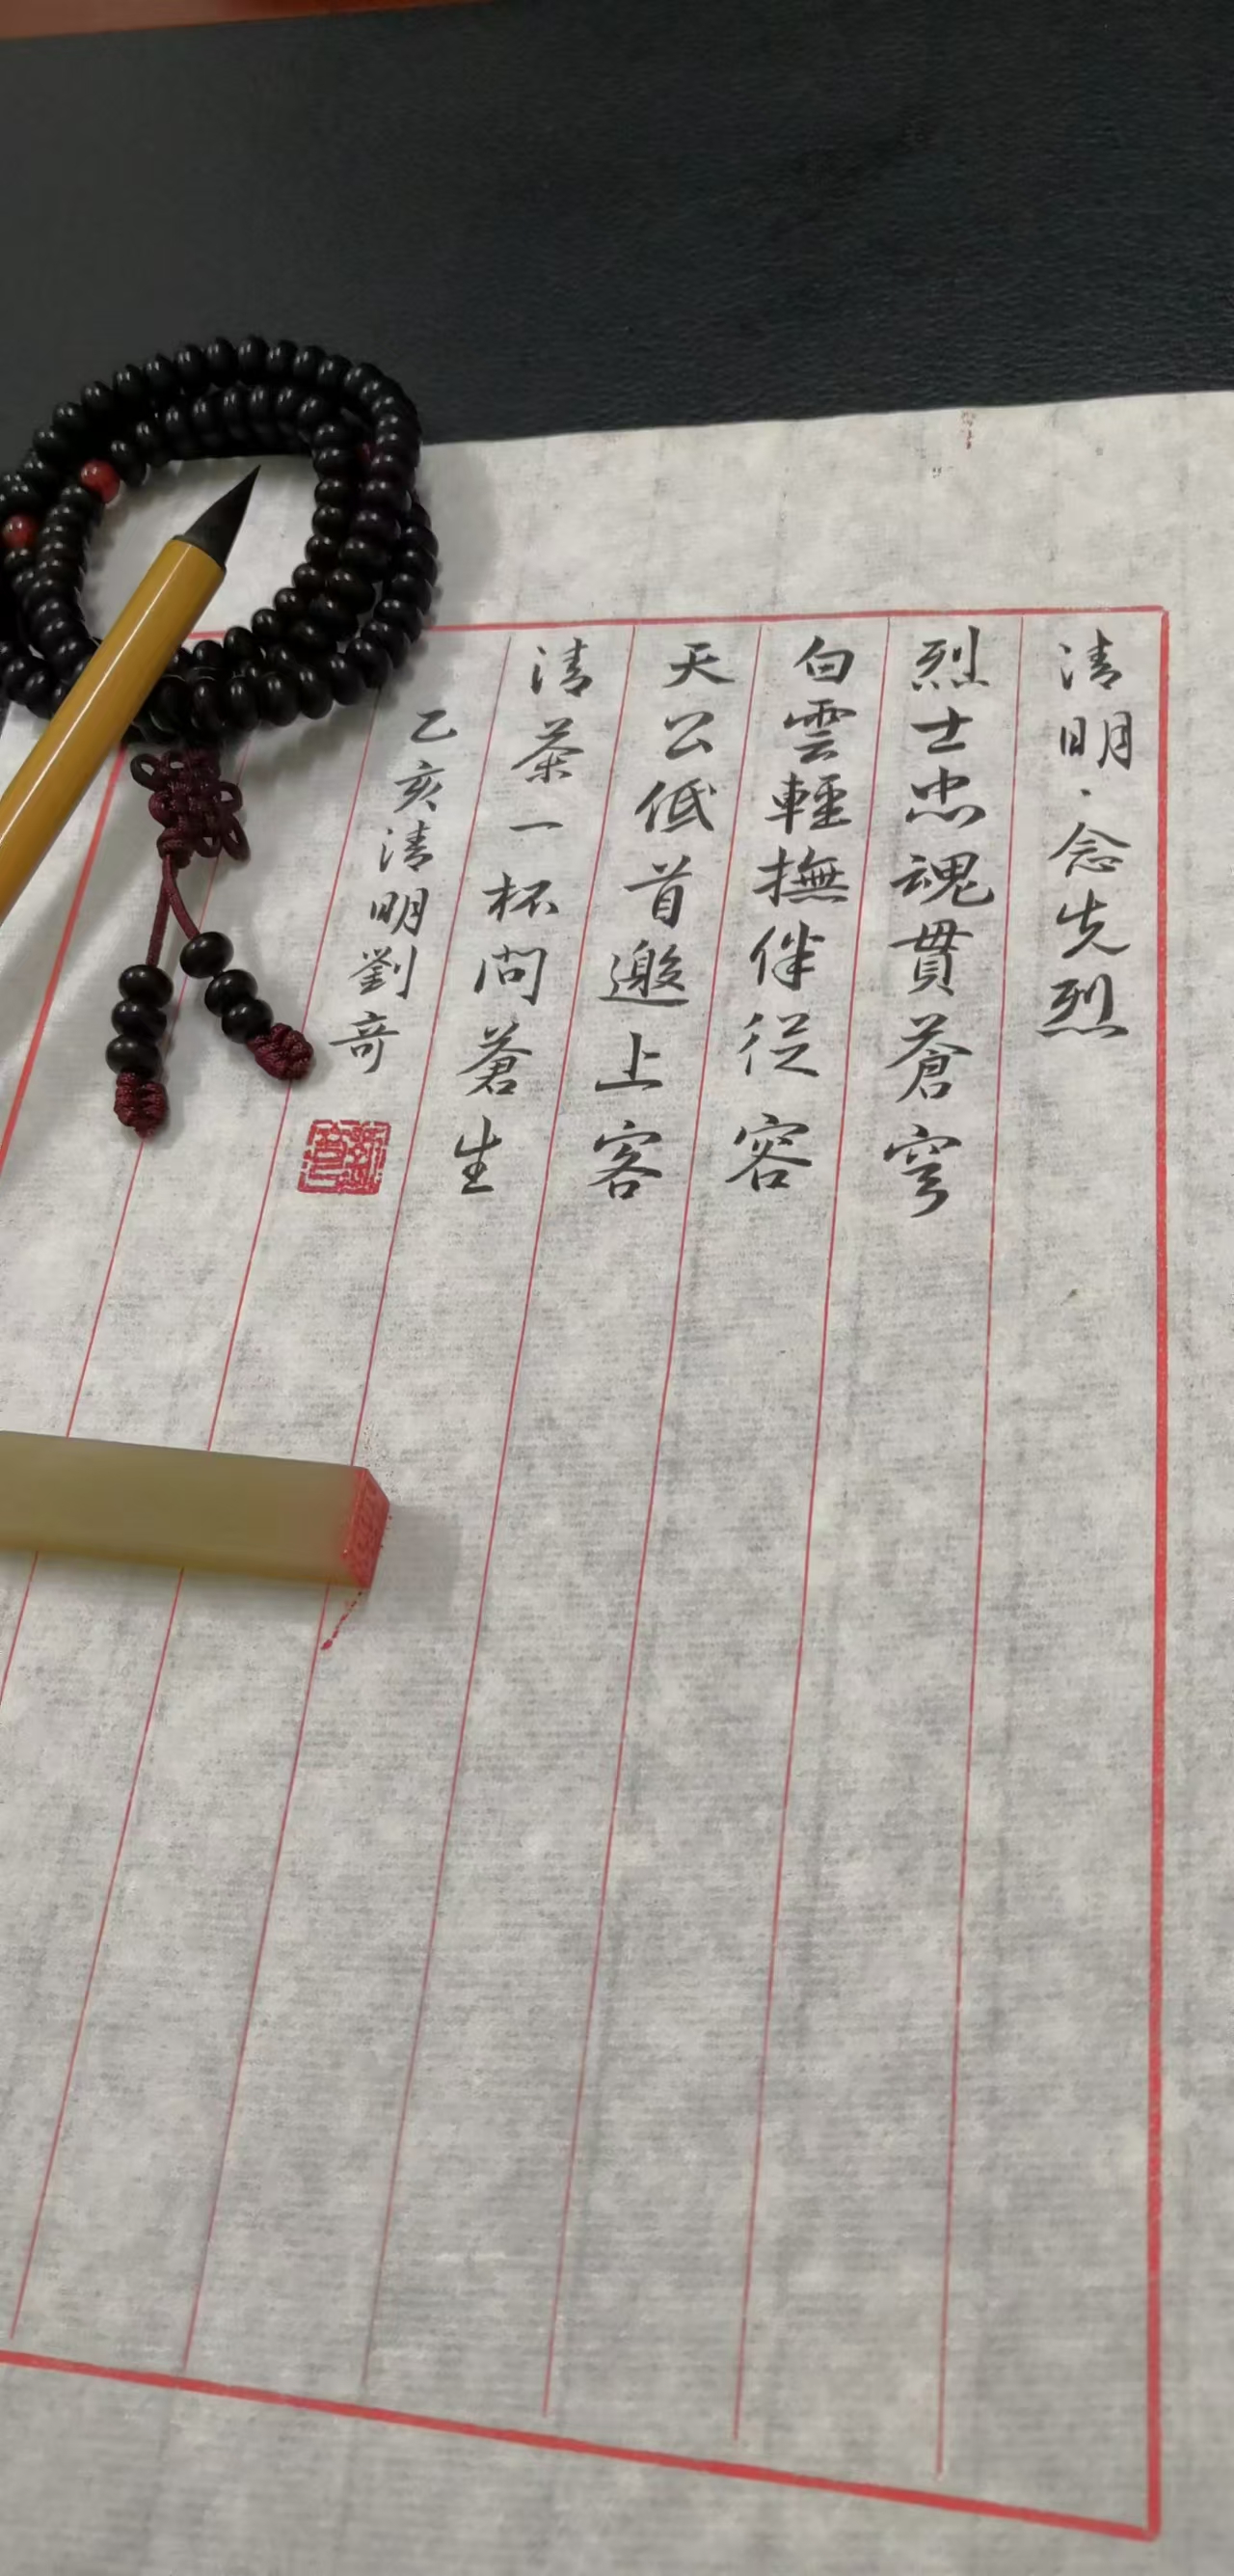 清明·念先烈
烈士忠魂貫蒼穹
白雲輕撫伴從容
天公低首邀上客
清茶一杯問蒼生
乙亥清明劉奇